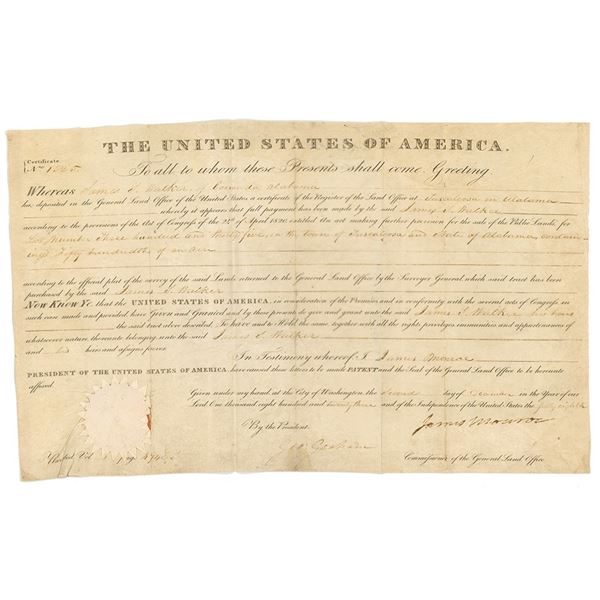 THE UNITED STATES OF AMERICA.
Certificate
No. 1265.
To all to whom these Presents shall come, Greeting
WHEREAS James S. Walker, of Alabama
has deposited in the General Land Office of the United States a certificate of the Register of the Land Office at Tuscaloosa in Alabama
whereby it appears that full payment has been made by the said James S. Walker
according to the provisions of the Act of Congress of the 24th of April 1820, entitled An act making further provision for the sale of the Public Lands, for
Lot Number Three hundred and thirty five in the town of Tuscaloosa and State of Alabama contain-
ing fifty hundredths of an acre
according to the official plat of the survey of the said Lands returned to the General Land Office by the Surveyor General which said tract has been
purchased by the said James S. Walker
NOW KNOW YE, that the UNITED STATES OF AMERICA, in consideration of the Premises and in conformity with the several acts of Congress in
such case made and provided, have Given and Granted, and by these presents do give and grant unto the said James S. Walker his heirs
the said tract above described. To have and to Hold the same, together with all the rights, privileges, immunities and appurtenances of
whatsoever nature, thereunto belonging unto the said James S. Walker
and his heirs and assigns forever.
In Testimony whereof, I, James Monroe
PRESIDENT OF THE UNITED STATES OF AMERICA, have caused these letters to be made PATENT and the Seal of the General Land Office to be hereunto
affixed.
Given under my hand, at the City of Washington, the second day of in the Year of our
Lord One thousand eight hundred and twenty three and of the Independence of the United States the forty eighth
James Monroe
By the President.
Geo: Graham
Recorded Vol. Page 474
Commissioner of the General Land Office.